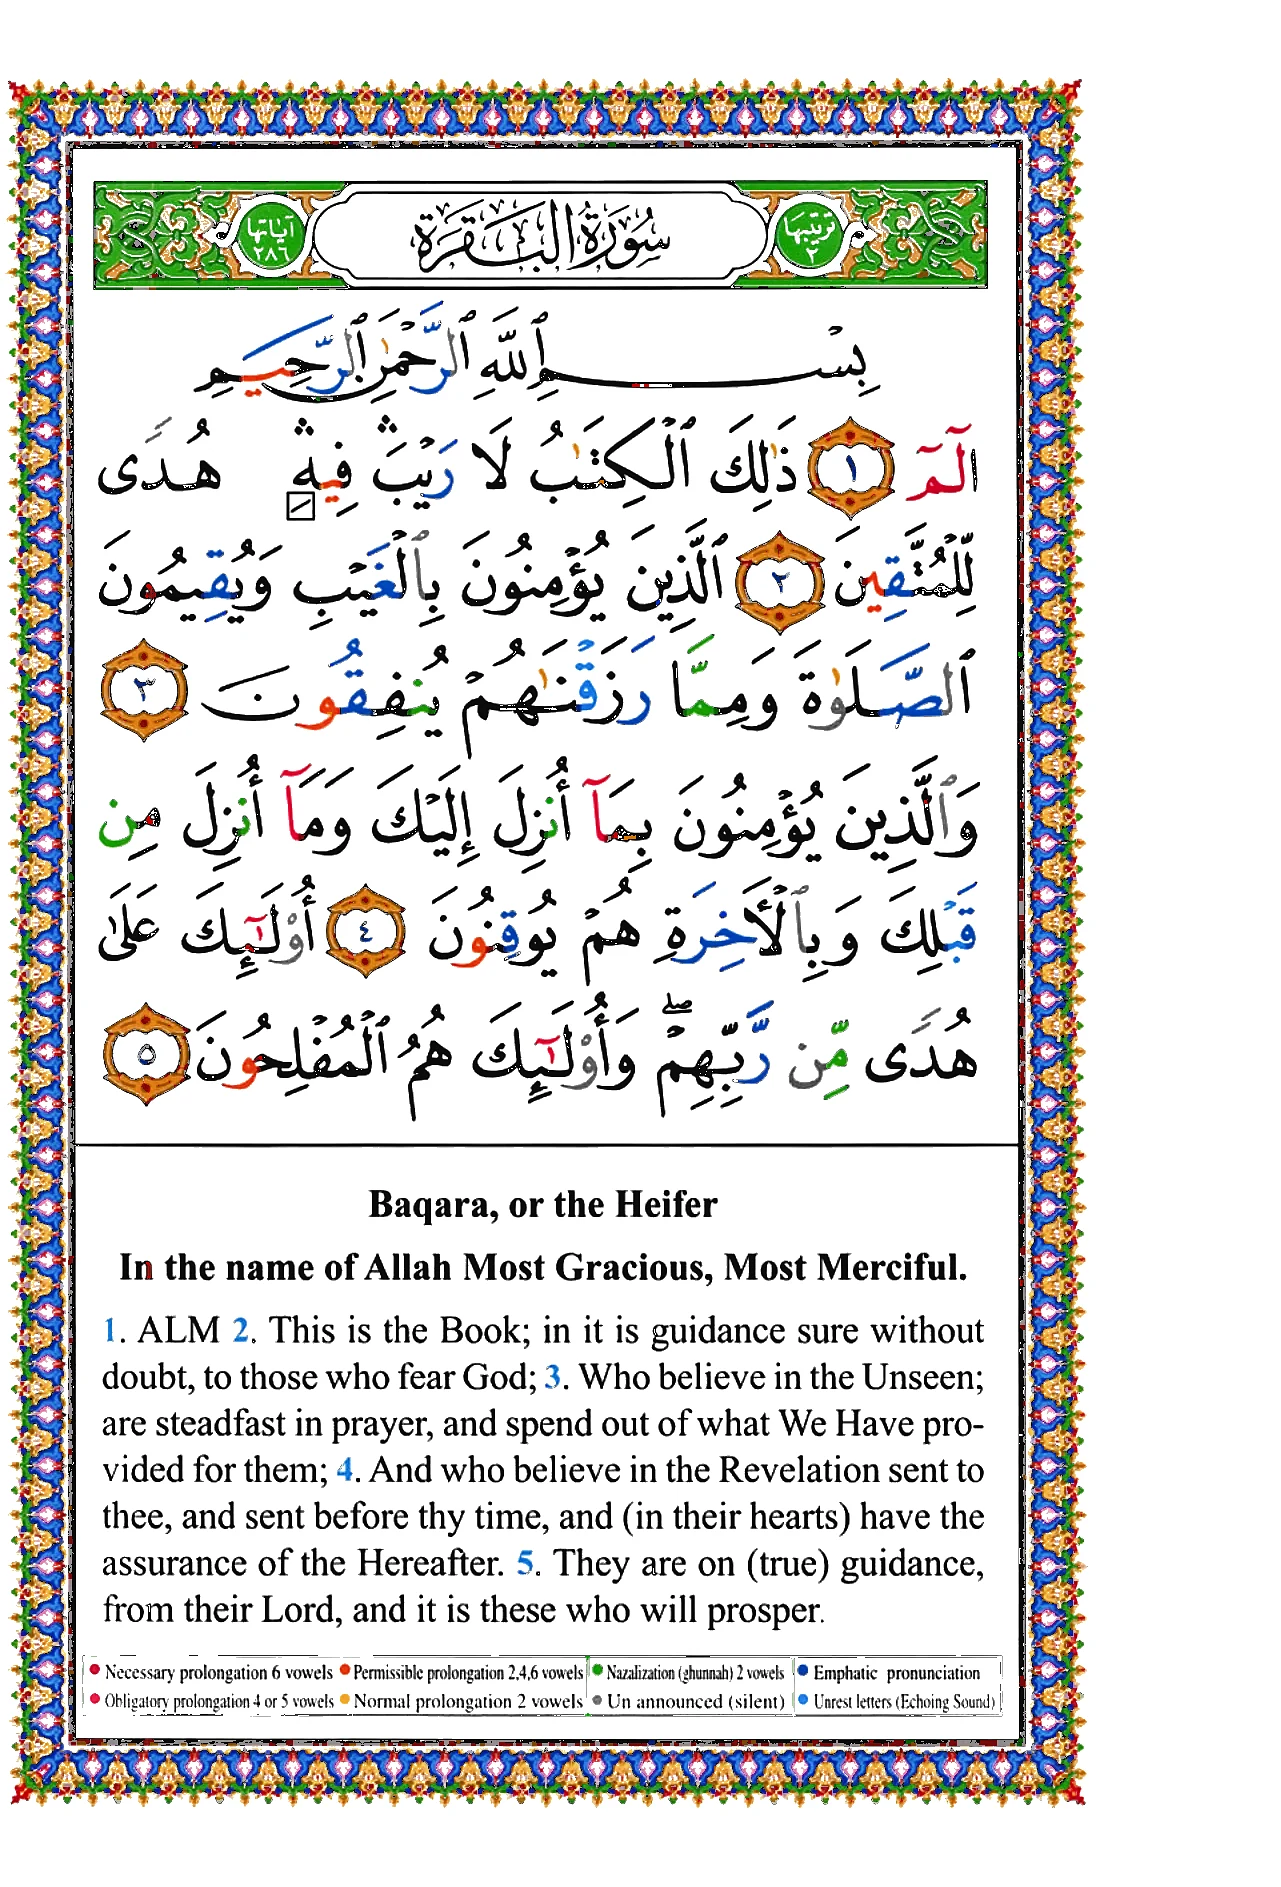 ترتيبها ٢
سُورَةُ الْبَقَرَة
آياتها ٢٨٦
بِسْمِ ٱللَّهِ ٱلرَّحْمَٰنِ ٱلرَّحِيمِ
الٓمٓ ١ ذَٰلِكَ ٱلْكِتَٰبُ لَا رَيْبَ ۛ فِيهِ ۛ هُدًى
لِّلْمُتَّقِينَ ٢ ٱلَّذِينَ يُؤْمِنُونَ بِٱلْغَيْبِ وَيُقِيمُونَ
ٱلصَّلَوٰةَ وَمِمَّا رَزَقْنَٰهُمْ يُنفِقُونَ ٣
وَٱلَّذِينَ يُؤْمِنُونَ بِمَآ أُنزِلَ إِلَيْكَ وَمَآ أُنزِلَ مِن
قَبْلِكَ وَبِٱلْأَخِرَةِ هُمْ يُوقِنُونَ ٤ أُوْلَٰٓئِكَ عَلَىٰ
هُدًى مِّن رَّبِّهِمْ ۖ وَأُوْلَٰٓئِكَ هُمُ ٱلْمُفْلِحُونَ ٥
Baqara, or the Heifer
In the name of Allah Most Gracious, Most Merciful.
1. ALM 2. This is the Book; in it is guidance sure without
doubt, to those who fear God; 3. Who believe in the Unseen;
are steadfast in prayer, and spend out of what We Have pro-
vided for them; 4. And who believe in the Revelation sent to
thee, and sent before thy time, and (in their hearts) have the
assurance of the Hereafter. 5. They are on (true) guidance,
from their Lord, and it is these who will prosper.
Necessary prolongation 6 vowels Permissible prolongation 2,4,6 vowels Nazalization (ghunnah) 2 vowels Emphatic pronunciation
Obligatory prolongation 4 or 5 vowels Normal prolongation 2 vowels Un announced (silent) Unrest letters (Echoing Sound)